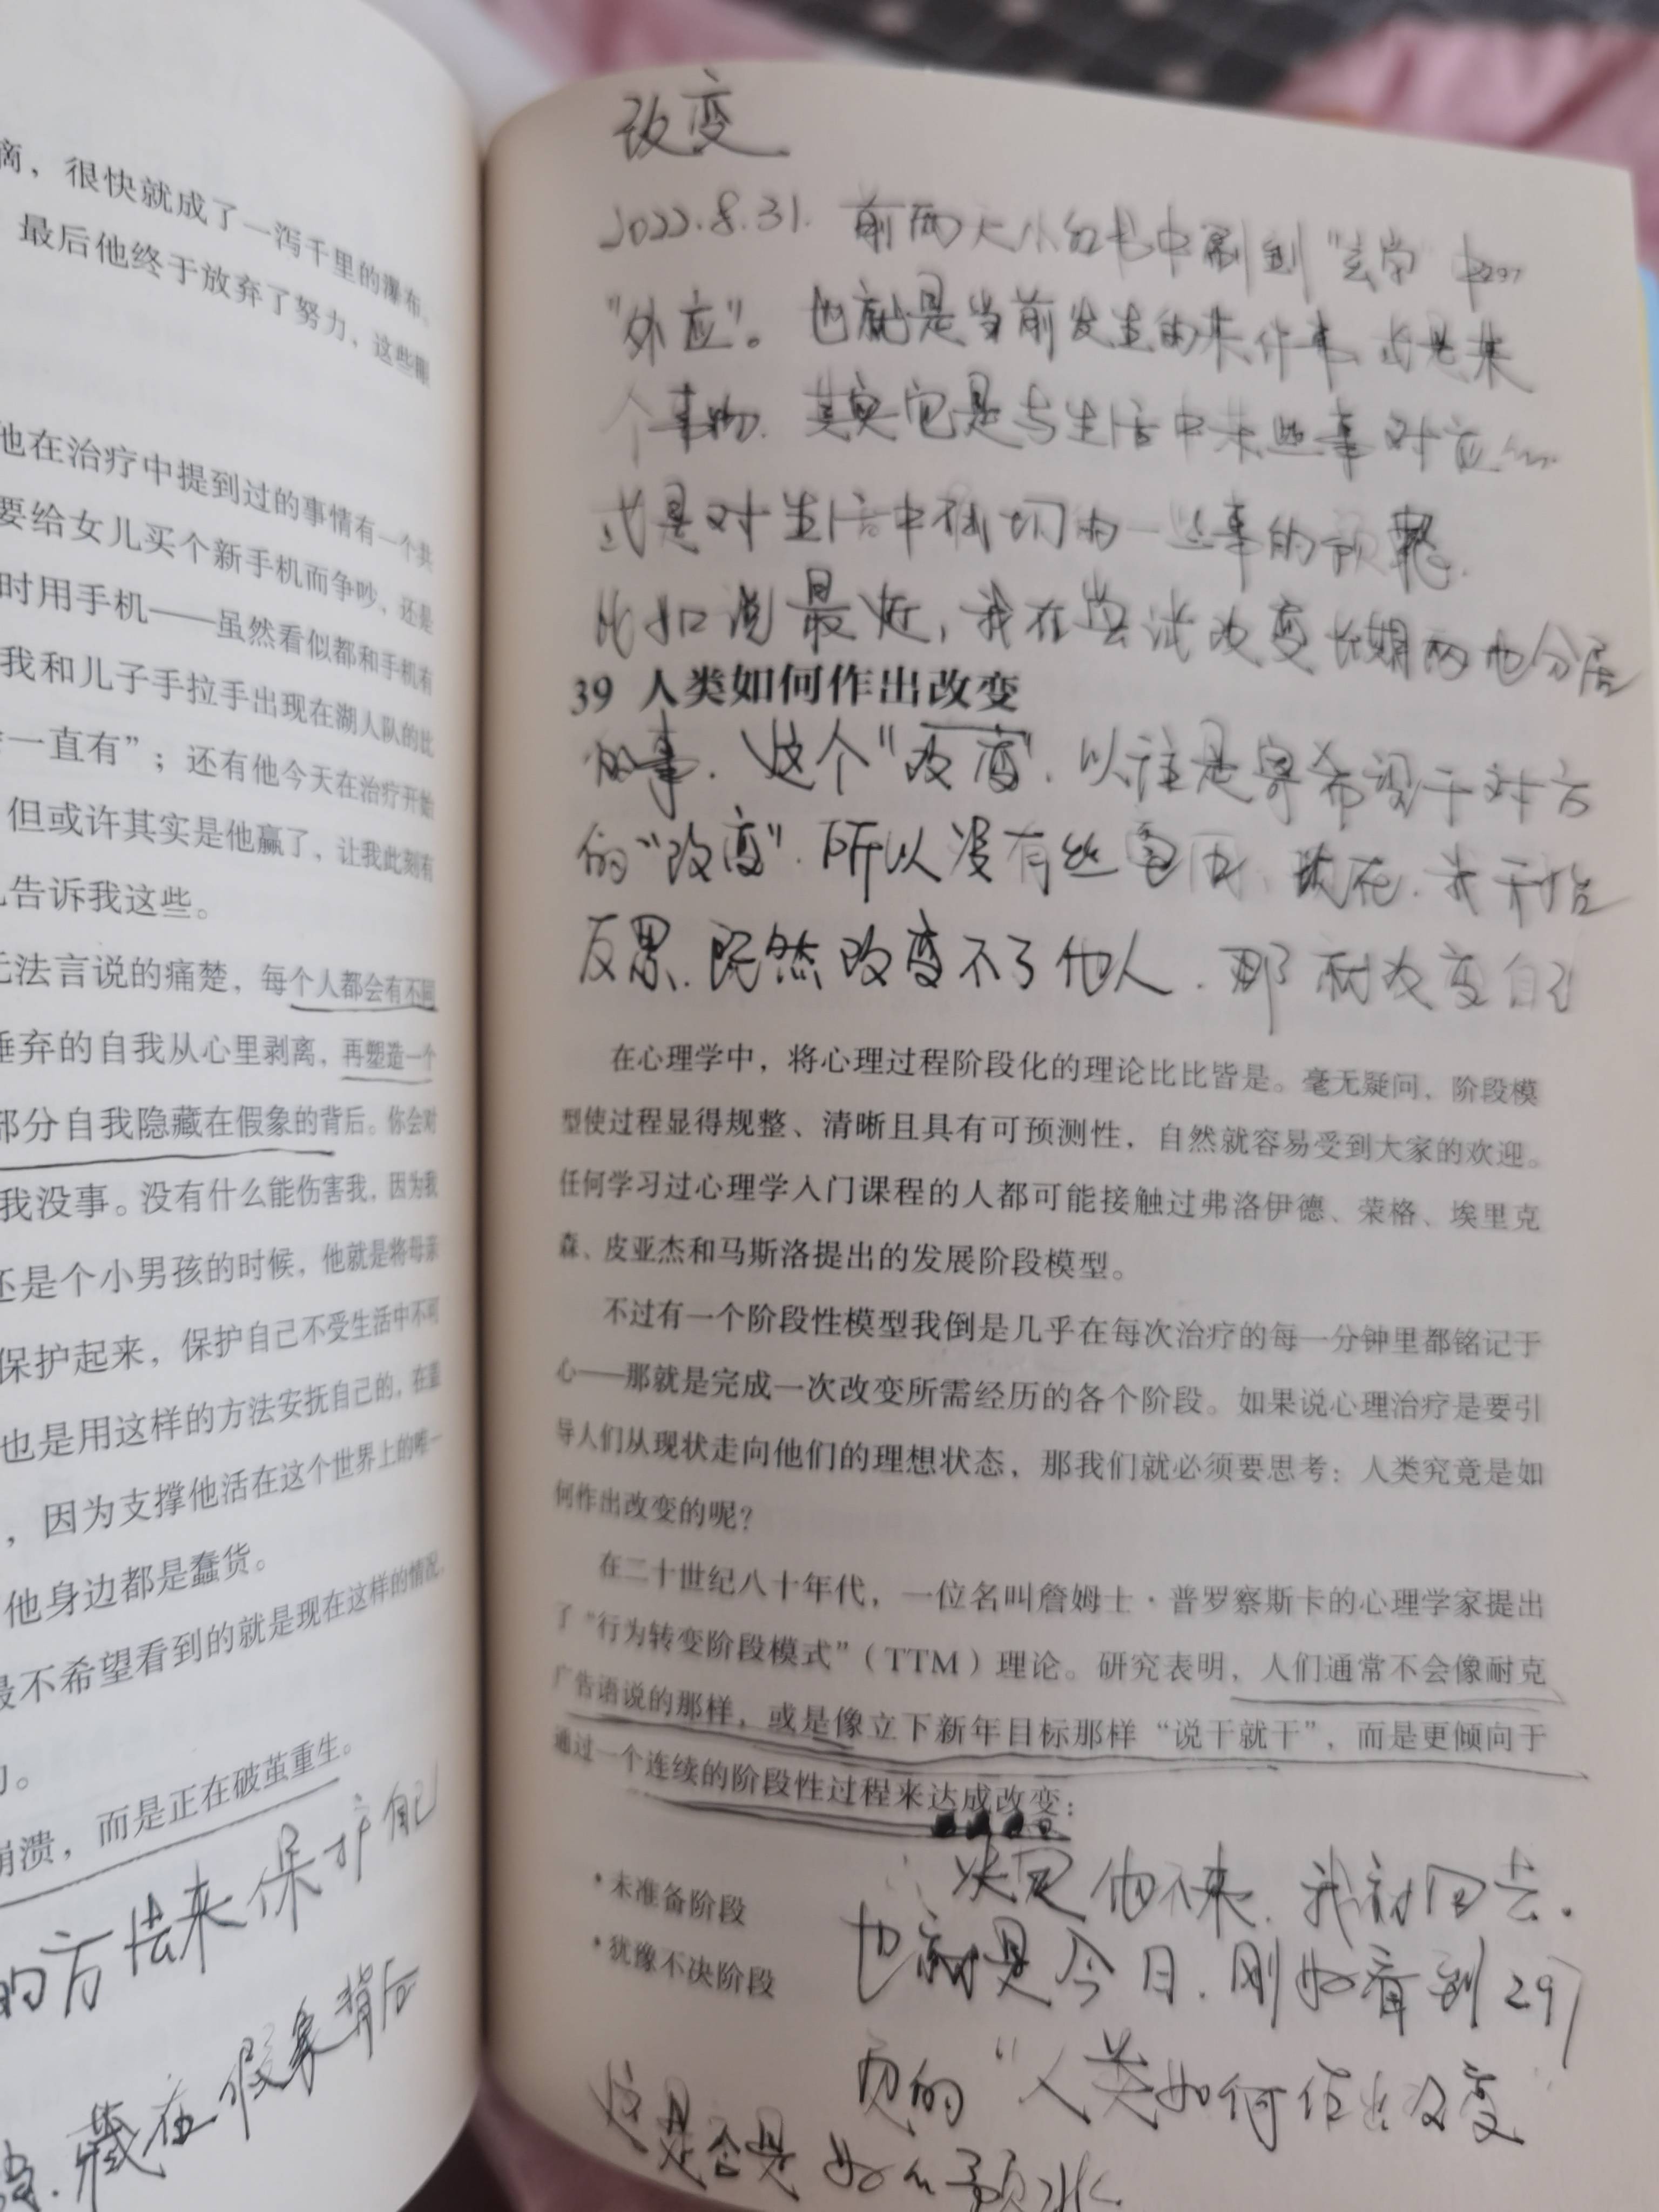 滴，很快就成了一泻千里的瀑布。
最后他终于放弃了努力，这些眼
他在治疗中提到过的事情有一个共
要给女儿买个新手机而争吵，还是
时用手机——虽然看似都和手机有
我和儿子手拉手出现在湖人队的比
一直有”；还有他今天在治疗开始
但或许其实是他赢了，让我此刻有
告诉我这些。
无法言说的痛楚，每个人都会有不同
弃的自我从心里剥离，再塑造一个
部分自我隐藏在假象的背后。你会对
我没事。没有什么能伤害我，因为我
还是个小男孩的时候，他就是将母亲
保护起来，保护自己不受生活中不可
也是用这样的方法安抚自己的，在
，因为支撑他活在这个世界上的唯一
他身边都是蠢货。
最不希望看到的就是现在这样的情况，
。
崩溃，而是正在破茧重生。
的方法来保护自己
藏在假象背后
改变
2022.8.31. 前两天小红书中刷到“玄学”中 297
“外应”。也就是当前发生的某件事，或是某
个事物．其实它是与生活中某些事对应
或是对生活中 切的一些事的预
比如说最近，我在尝试改变长期两地分居
39 人类如何作出改变
的事．这个“改变”．以往是寄希望于对方
的“改变”．所以没有丝毫用．现在．我开始
反思．既然改变不了他人．那就改变自己
在心理学中，将心理过程阶段化的理论比比皆是。毫无疑问，阶段模
型使过程显得规整、清晰且具有可预测性，自然就容易受到大家的欢迎。
任何学习过心理学入门课程的人都可能接触过弗洛伊德、荣格、埃里克
森、皮亚杰和马斯洛提出的发展阶段模型。
不过有一个阶段性模型我倒是几乎在每次治疗的每一分钟里都铭记于
心——那就是完成一次改变所需经历的各个阶段。如果说心理治疗是要引
导人们从现状走向他们的理想状态，那我们就必须要思考：人类究竟是如
何作出改变的呢？
在二十世纪八十年代，一位名叫詹姆士·普罗察斯卡的心理学家提出
了“行为转变阶段模式”（TTM）理论。研究表明，人们通常不会像耐克
广告语说的那样，或是像立下新年目标那样“说干就干”，而是更倾向于
通过一个连续的阶段性过程来达成改变：
·未准备阶段
决定他不来．我就回去．
·犹豫不决阶段
也就是今日．刚好看到297
页的“人类如何作出改变”
这是否是